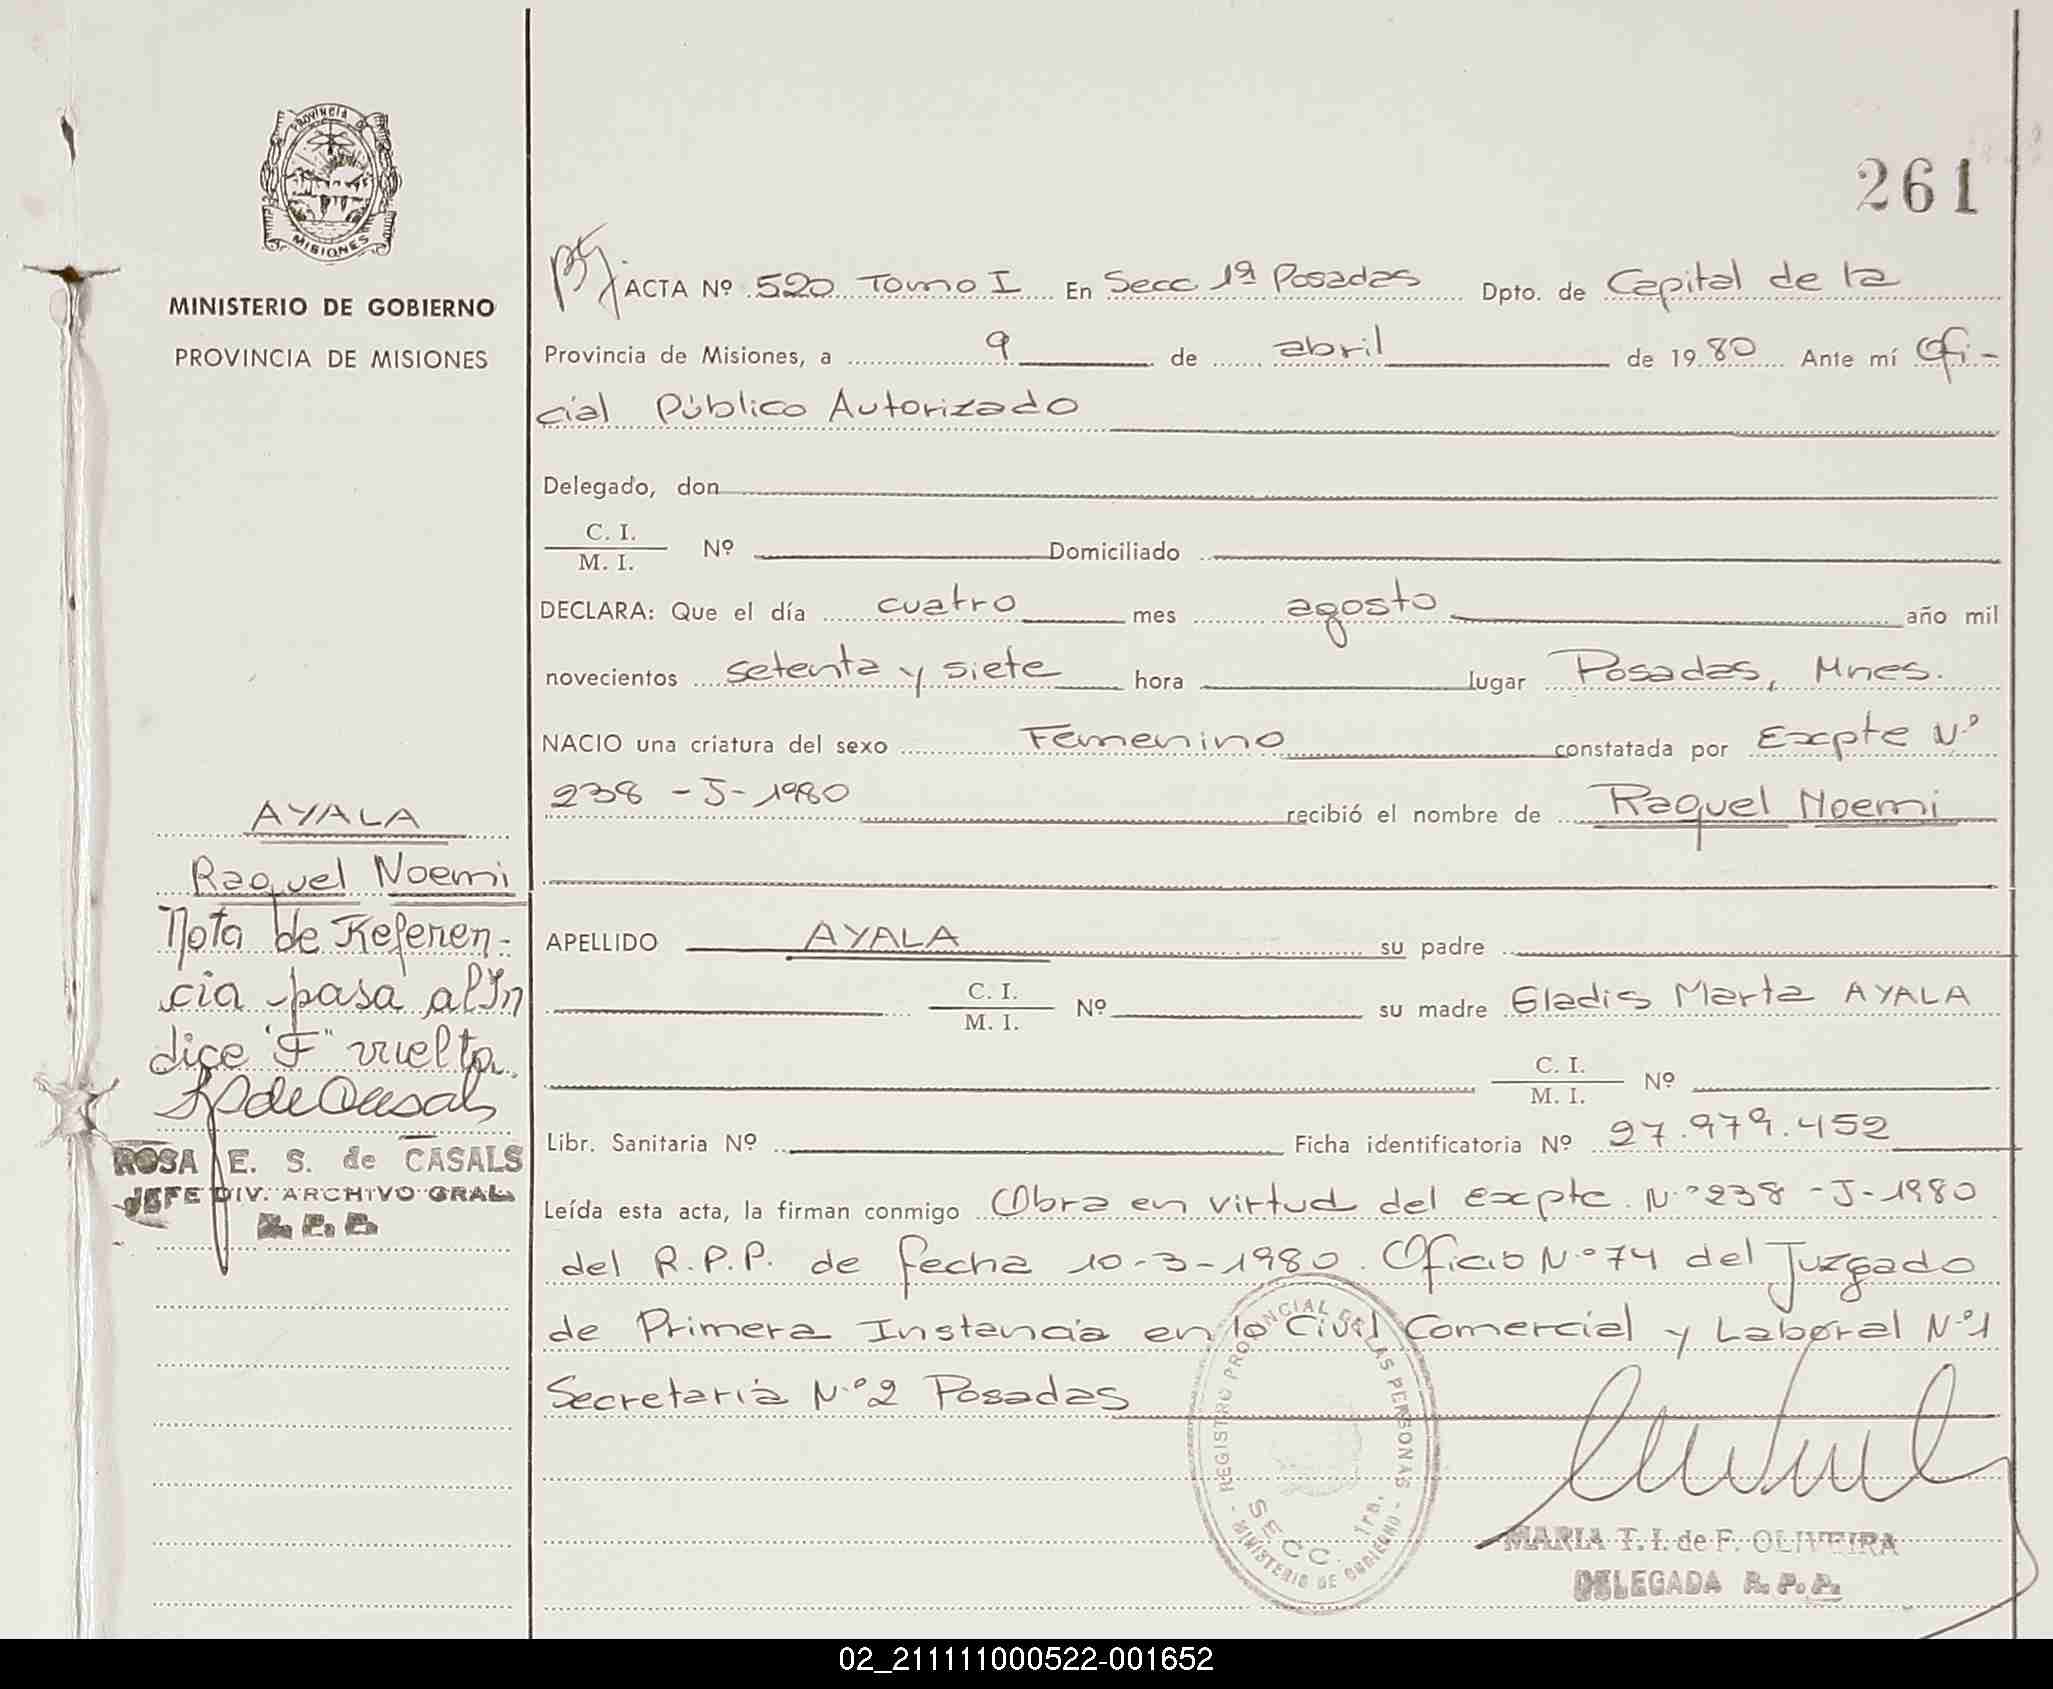 261
PROVINCIA DE
MISIONES
MINISTERIO DE GOBIERNO
PROVINCIA DE MISIONES
ACTA Nº 520 Tomo I En Secc 1ª Posadas Dpto. de Capital de la
Provincia de Misiones, a 9 de abril de 1980 Ante mí Ofi-
cial Público Autorizado
Delegado, don
C. I.
M. I. Nº Domiciliado
DECLARA: Que el día cuatro mes agosto año mil
novecientos setenta y siete hora lugar Posadas, Mnes.
NACIO una criatura del sexo Femenino constatada por Expte Nº
238 - J - 1980 recibió el nombre de Raquel Noemi
APELLIDO AYALA su padre
C. I.
M. I. Nº su madre Gladis Marta AYALA
C. I.
M. I. Nº
Libr. Sanitaria Nº Ficha identificatoria Nº 27.979.452
Leída esta acta, la firman conmigo Obra en virtud del Expte. Nº 238 - J - 1980
del R.P.P. de fecha 10-3-1980. Oficio Nº 74 del Juzgado
de Primera Instancia en lo Civil Comercial y Laboral Nº 1
Secretaria Nº 2 Posadas
AYALA
Raquel Noemi
Nota de Referen-
cia pasa al In
dice "F" vuelta.
ROSA E. S. de CASALS
JEFE DIV. ARCHIVO GRAL.
R. P. P.
REGISTRO PROVINCIAL DE LAS PERSONAS
SECC. 1ra.
MINISTERIO DE GOBIERNO
MARIA T. I. de F. OLIVEIRA
DELEGADA R. P. P.
02_211111000522-001652